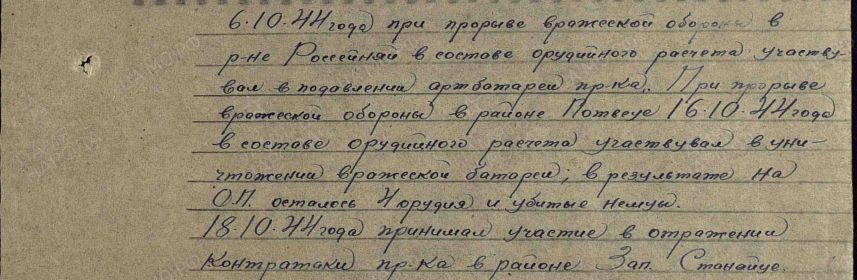 6.10.44 года при прорыве вражеской обороны в
р-не Россейняй в составе орудийного расчета участву-
вал в подавлении артбатареи пр-ка. При прорыве
вражеской обороны в районе Потвеце 16.10.44 года
в составе орудийного расчета участвувал в уни-
чтожении вражеской батареи; в результате на
О.П. осталось 4 орудия и убитые немцы.
18.10.44 года принимал участие в отражении
контратаки пр-ка в районе Зап. Станайце.